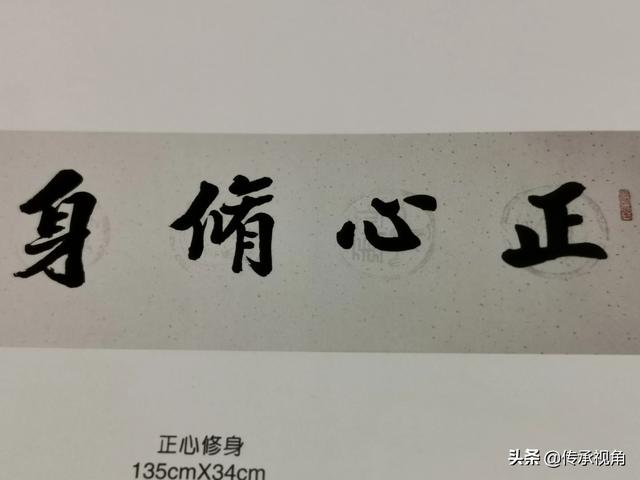 正心脩身
正心修身
135cmX34cm
头条 @传承视角